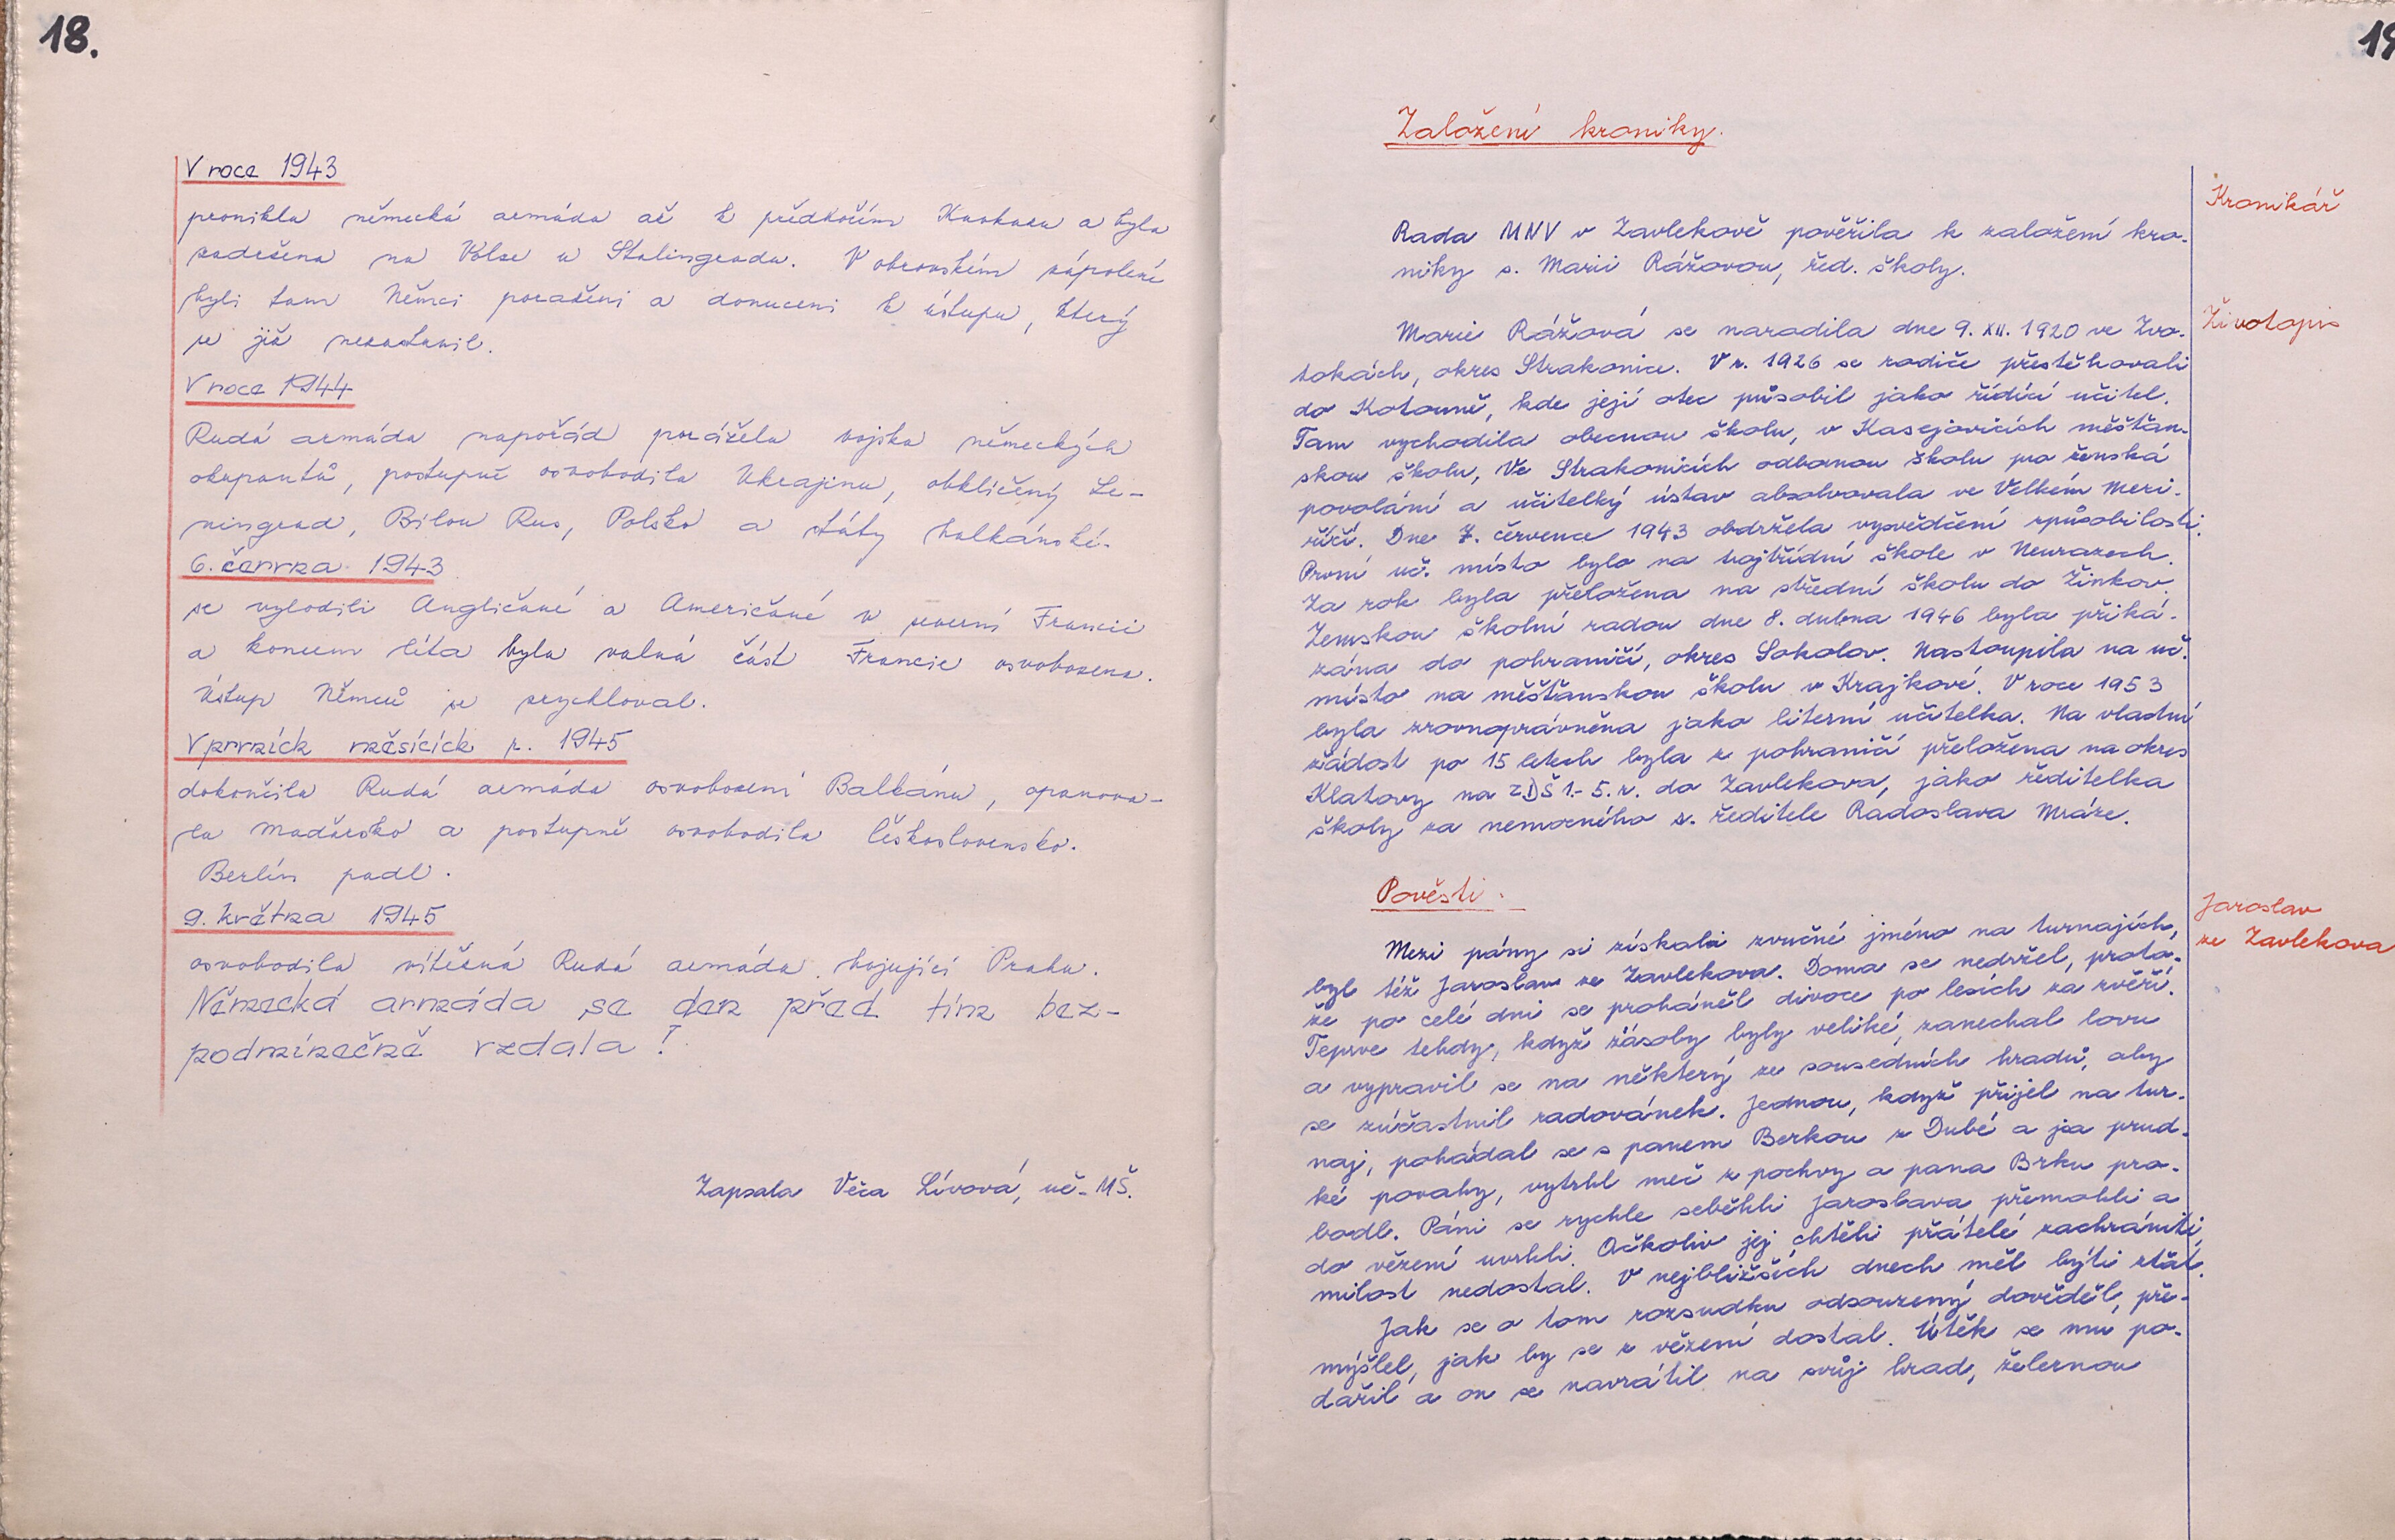 18.
V roce 1943
pronikla německá armáda až k předhořím Kavkazu a byla
zadržena na Volze u Stalingradu. V obrovském zápolení
byli tam Němci poraženi a donuceni k ústupu, který
se již nezastavil.
V roce 1944
Rudá armáda napořád porážela vojska německých
okupantů, postupně osvobodila Ukrajinu, obklíčený Le-
ningrad, Bílou Rus, Polsko a státy balkánské.
6. června 1943
se vylodili Angličané a Američané v severní Francii
a koncem léta byla valná část Francie osvobozena.
Ústup Němců se zrychloval.
V prvních měsících r. 1945
dokončila Rudá armáda osvobození Balkánu, opanova-
la Maďarsko a postupně osvobodila Československo.
Berlín padl.
9. května 1945
osvobodila vítězná Rudá armáda bojující Prahu.
Německá armáda se den před tím bez-
podmínečně vzdala!
Zapsala Věra Lívová, uč. MŠ.
19
Založení kroniky.
Kronikář
Rada MNV v Zavlekově pověřila k založení kro-
niky s. Marii Rážovou, řed. školy.
Životopis
Marie Rážová se narodila dne 9. XII. 1920 ve Zvo-
tokách, okres Strakonice. V r. 1926 se rodiče přestěhovali
do Kotouně, kde její otec působil jako řídící učitel.
Tam vychodila obecnou školu, v Kasejovicích měšťan-
skou školu, Ve Strakonicích odbornou školu pro ženská
povolání a učitelký ústav absolvovala ve Velkém Meri-
říčí. Dne 7. července 1943 obdržela vysvědčení způsobilosti.
První uč. místo bylo na trojtřídní škole v Neurazech.
Za rok byla přeložena na střední školu do Žinkov.
Zemskou školní radou dne 8. dubna 1946 byla přiká-
zána do pohraničí, okres Sokolov. Nastoupila na uč.
místo na měšťanskou školu v Krajkové. V roce 1953
byla zrovnoprávněna jako literní učitelka. Na vlastní
žádost po 15 letech byla z pohraničí přeložena na okres
Klatovy na ZDŠ 1.-5. r. do Zavlekova, jako ředitelka
školy za nemocného s. ředitele Radoslava Mráze.
Pověsti.
Jaroslav
ze Zavlekova
Mezi pány si získali zvučné jméno na turnajích,
byl též Jaroslav ze Zavlekova. Doma se nedržel, proto-
že po celé dni se proháněl divoce po lesích za zvěří.
Teprve tehdy, když zásoby byly veliké, zanechal lovu
a vypravil se na některý ze sousedních hradů, aby
se zúčastnil radovánek. Jednou, když přijel na tur-
naj, pohádal se s panem Berkou z Dubé a jsa prud-
ké povahy, vytrhl meč z pochvy a pana Brku pro-
bodl. Páni se rychle seběhli Jaroslava přemohli a
do vězení uvrhli. Ačkoliv jej chtěli přátelé zachrániti,
milost nedostal. V nejbližších dnech měl býti stát.
Jak se o tom rozsudku odsouzený dověděl, pře-
mýšlel, jak by se z vězení dostal. Útěk se mu po-
dařil a on se navrátil na svůj hrad, železnou